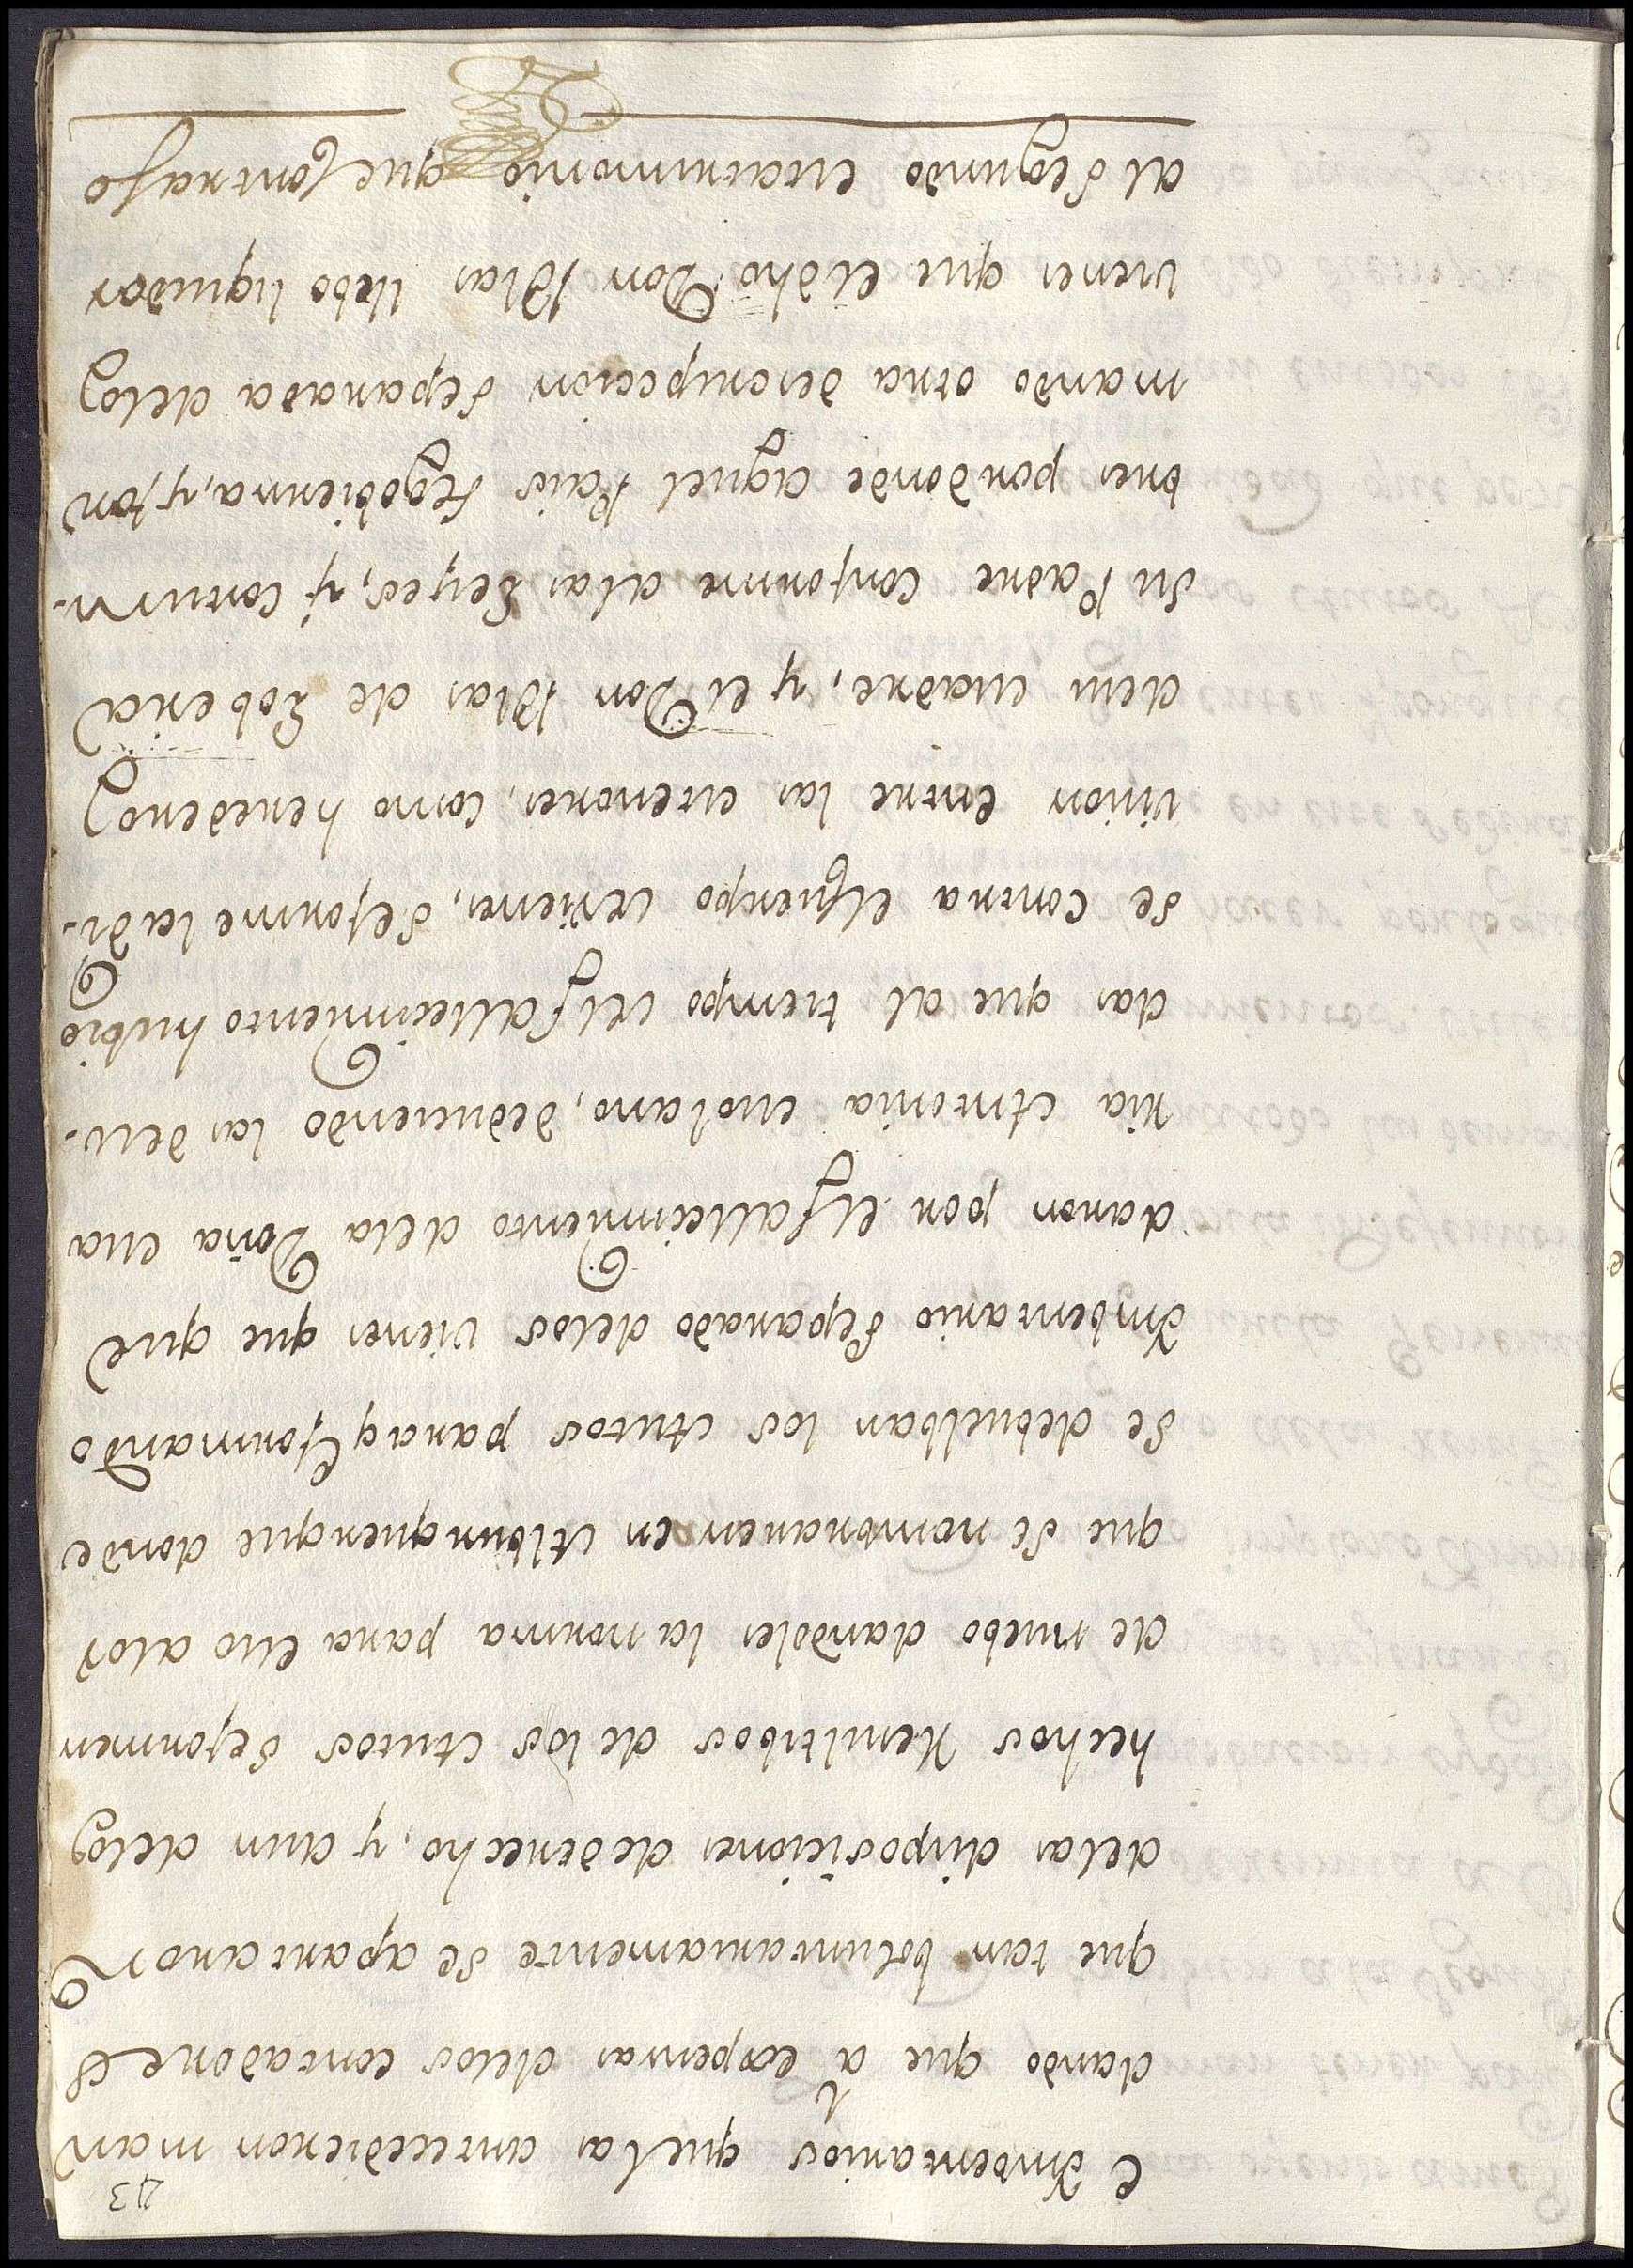 43
e Ynbentarios que las antecedieron man
dando que â expensas delos contadores
que tan boluntariamente se apartaron
delas disposiciones dederecho, y aun delos
hechos Resultibos de los Autos seformen
de nuebo dandoles la norma para ello alos
que se nombraren en Alburquerque donde
se debuelban los Autos para q.e formando
Ynbentario separado delos vienes que que
daron por elfallecimiento dela Doña Ma
ria Antonia Molano, deduciendo las deu-
das que al tiempo delfallecimiento hubie
se contra elquerpo debienes, seforme la di-
vision entre las menores, como herederos
desu Madre, y el Don Blas de Lobera
su Padre conforme alas Leyes, y costum-
bres pordonde aquel Pais segobierna, y for
mando otra descripccion separada delos
vienes que eldho Don Blas llebo liquidos
al segundo Matrimonio que contrajo